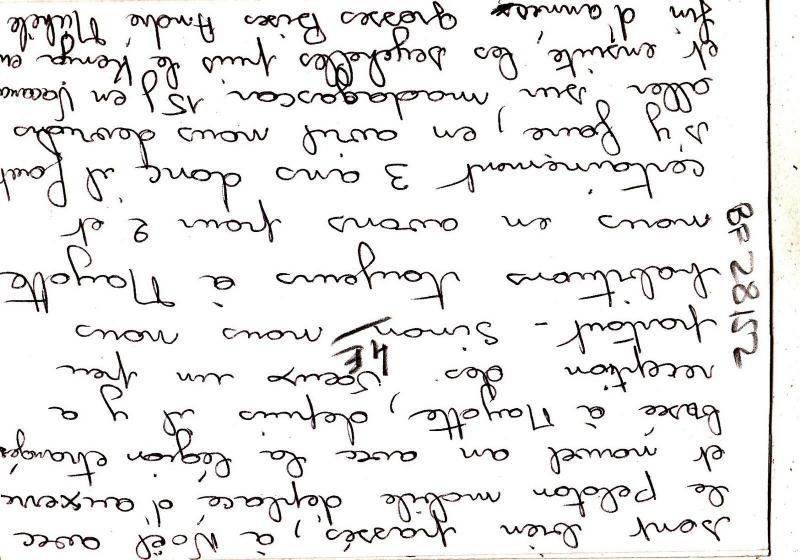 sont bien passés, à Noël avec
le peloton mobile déplacé d'auxerre
et nouvel an avec la légion étrangère
basée à Mayotte, depuis il y a
reception des voeux un peu
partout - Simon nous nous
habituons toujours à Mayotte
nous en avons pour 2 et
certainement 3 ans donc il faut
s'y faire, en avril nous devrions
aller sur madagascar 15 j en vacances
et ensuite les seychelles puis le Kenya en
fin d'années grosses Bises André Michèle
4E
BF 28152